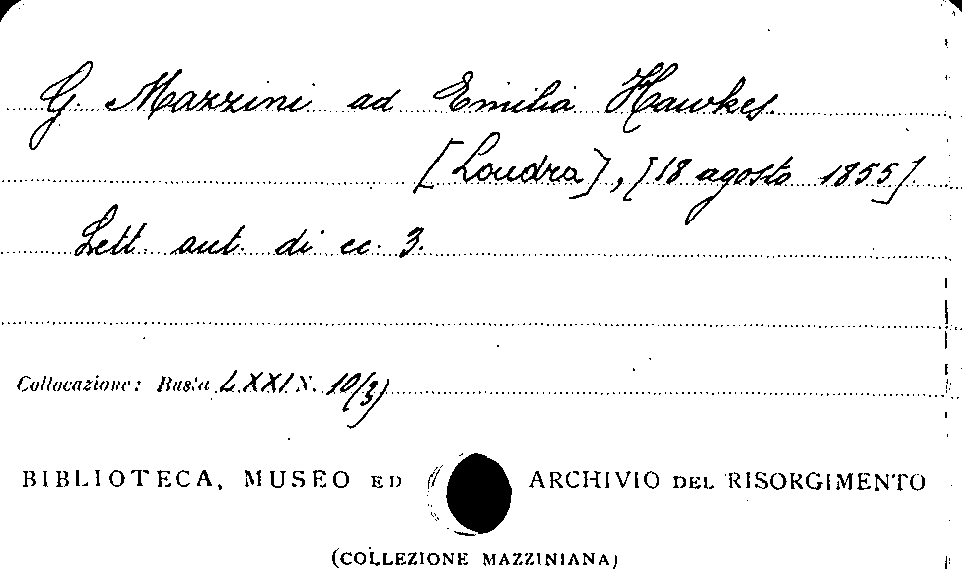 G. Mazzini ad Emilia Hawkes.
[Londra], [18 agosto 1855]
Lett. aut. di cc. 3.
Collocazione: Busta LXXI N. 10/3)
BIBLIOTECA, MUSEO ED ARCHIVIO DEL RISORGIMENTO
(COLLEZIONE MAZZINIANA)